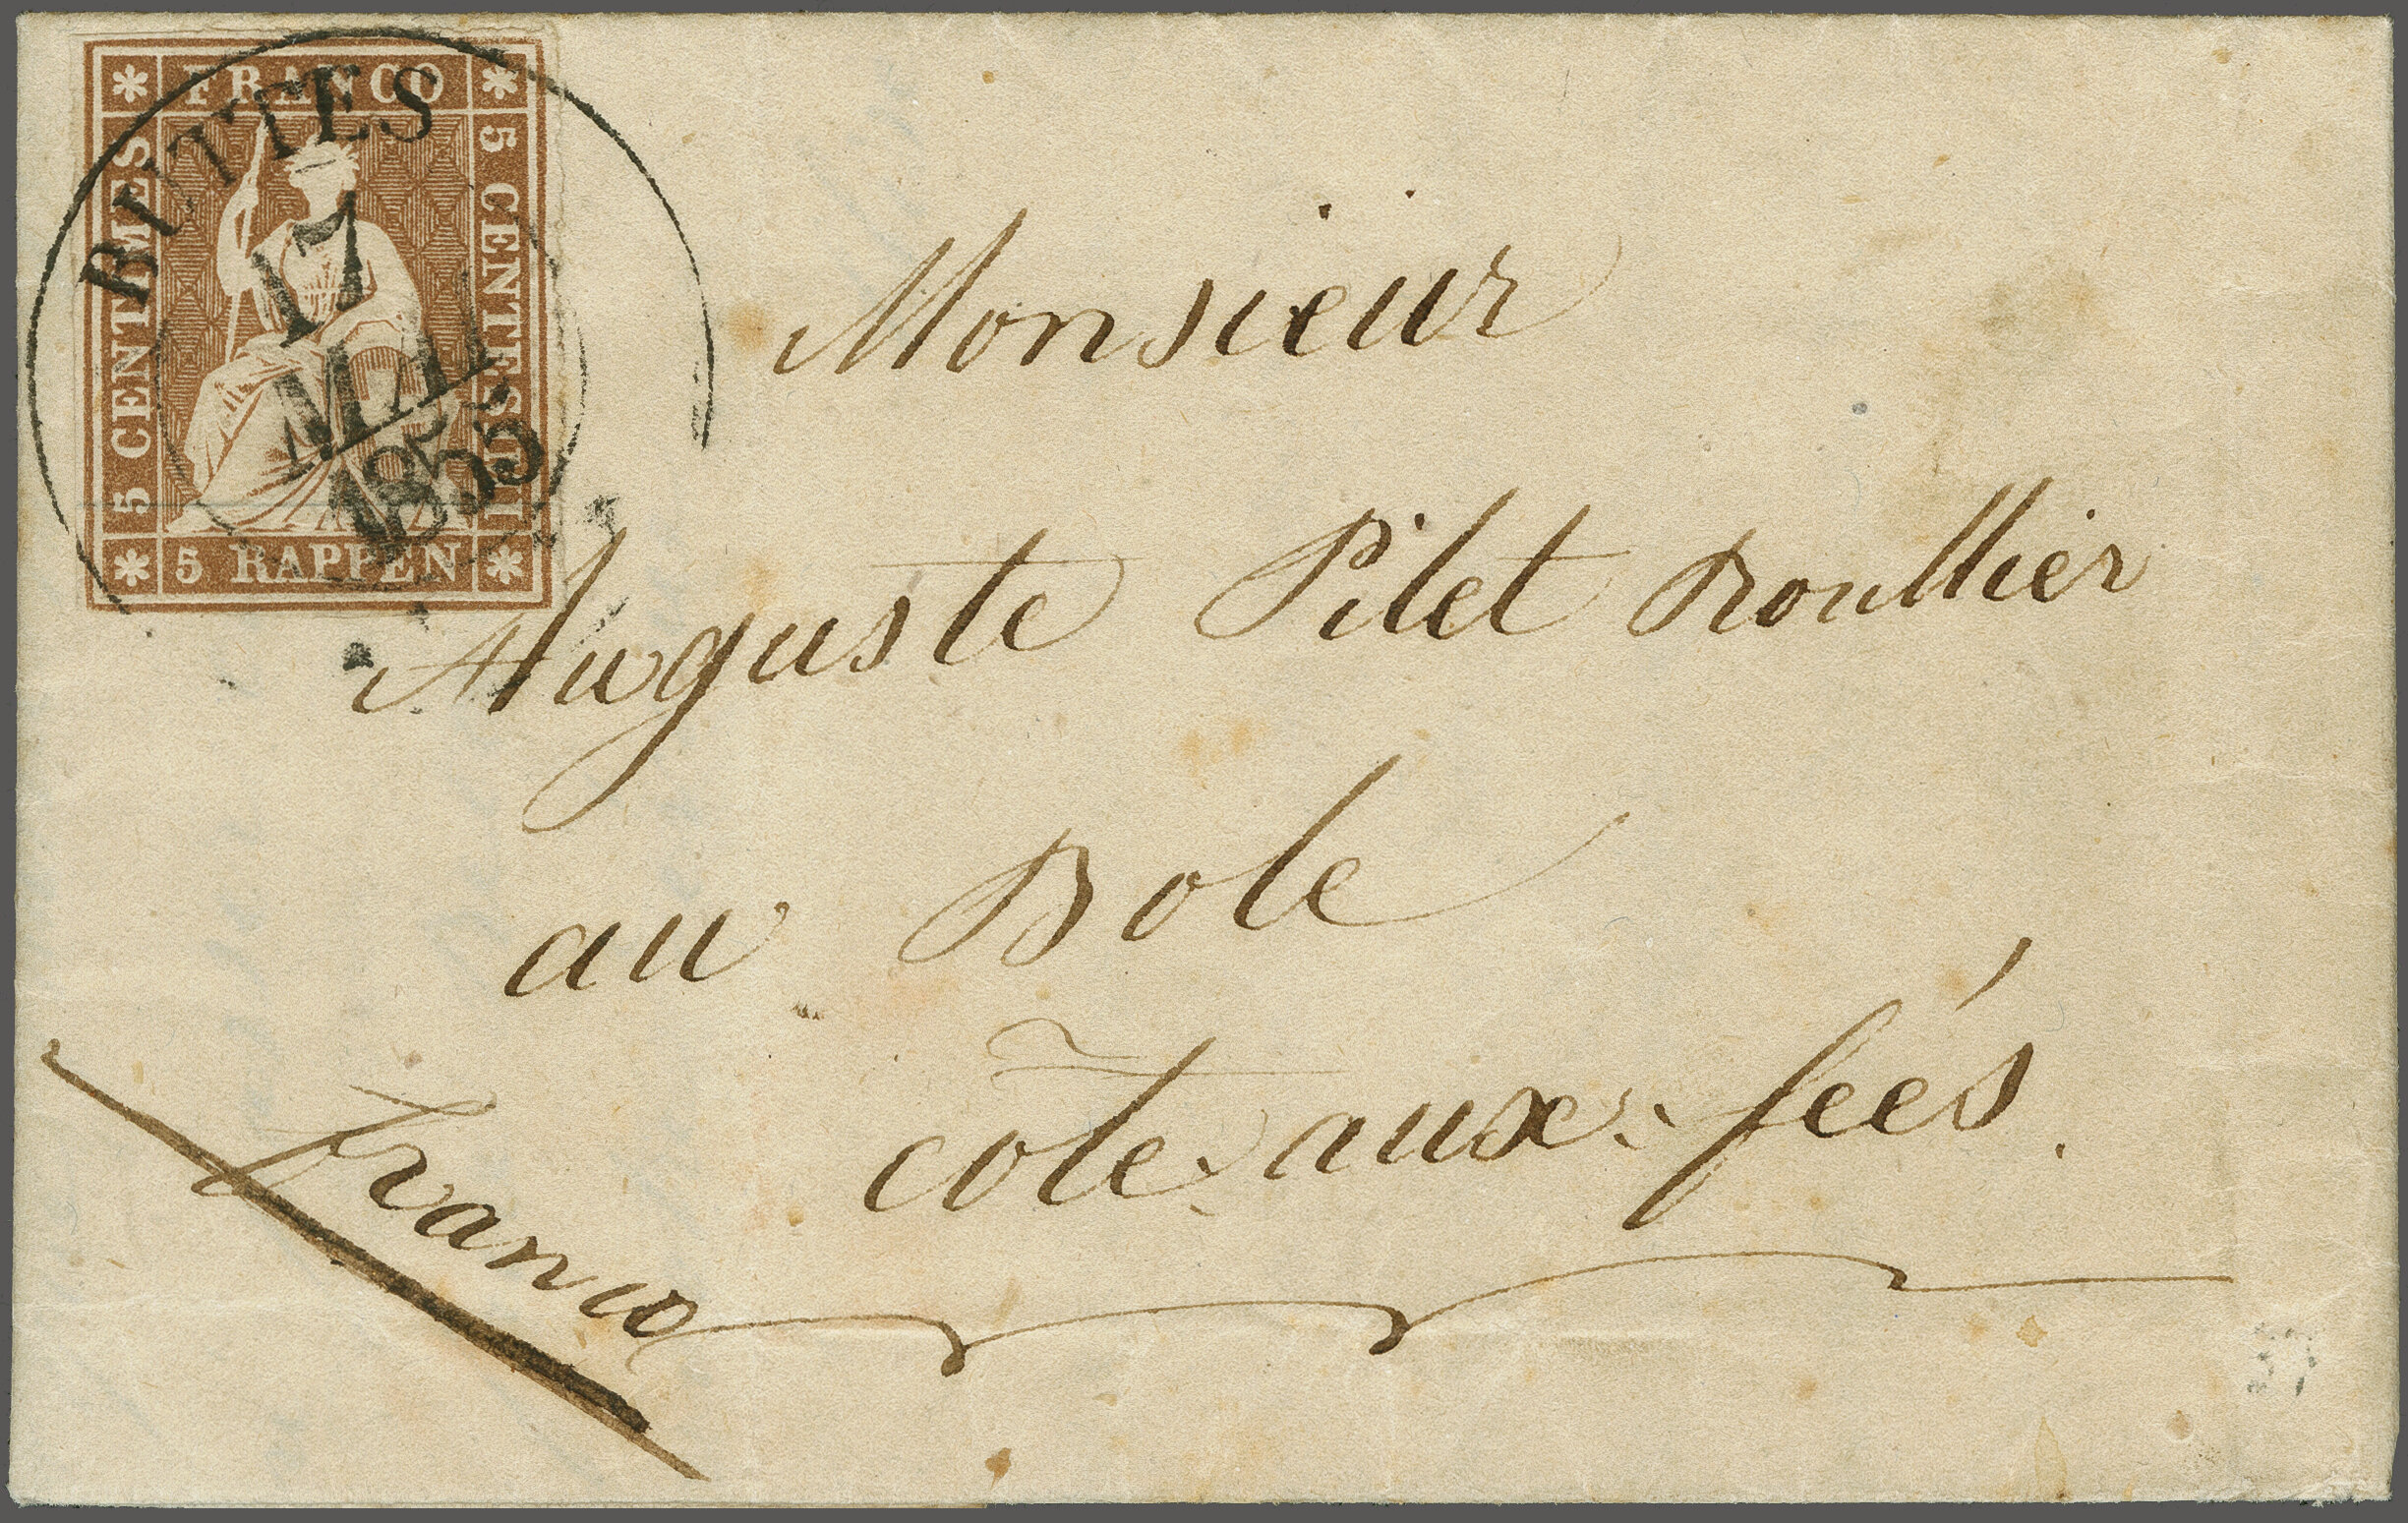 FRANCO
5 CENTIMES
5 CENTESIMI
5 RAPPEN
BUTTES
17
MAI
1855
Monsieur
Auguste Pilet Roullier
au Bole
côte-aux-feés.
franco